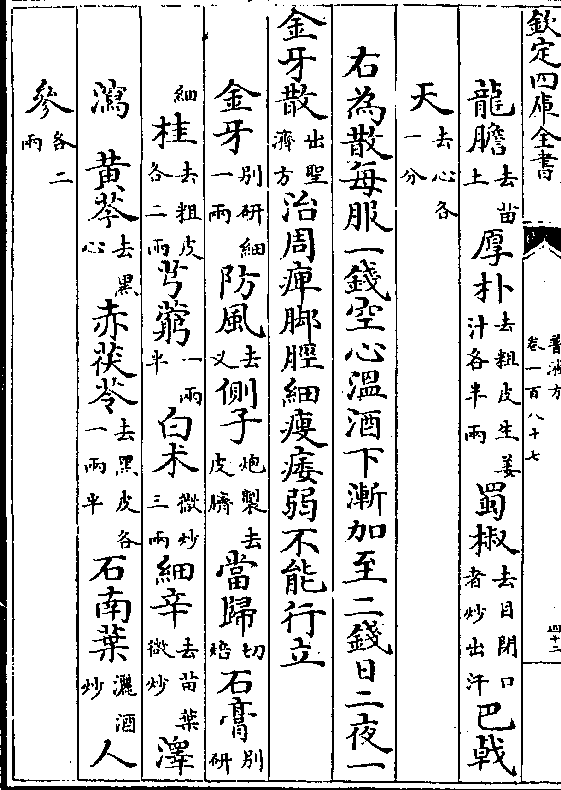 欽定四庫全書
普濟方
卷一百八十七
四十二
龍膽去苗土 厚朴去粗皮生姜汁各半兩 蜀椒去目閉口者炒出汗 巴戟
天去心各一分
右為散每服一錢空心溫酒下漸加至二錢日二夜一
金牙散出聖濟方治周痺脚脛細瘦痿弱不能行立
金牙別研細一兩 防風去叉 側子炮製去皮臍 當歸切焙 石膏別研
細 桂去粗皮各二兩 芎藭一兩半 白术微炒三兩 細辛去苗葉微炒 澤
瀉 黃芩去黑心 赤茯苓去黑皮各一兩半 石南葉灑酒炒 人
參各二兩